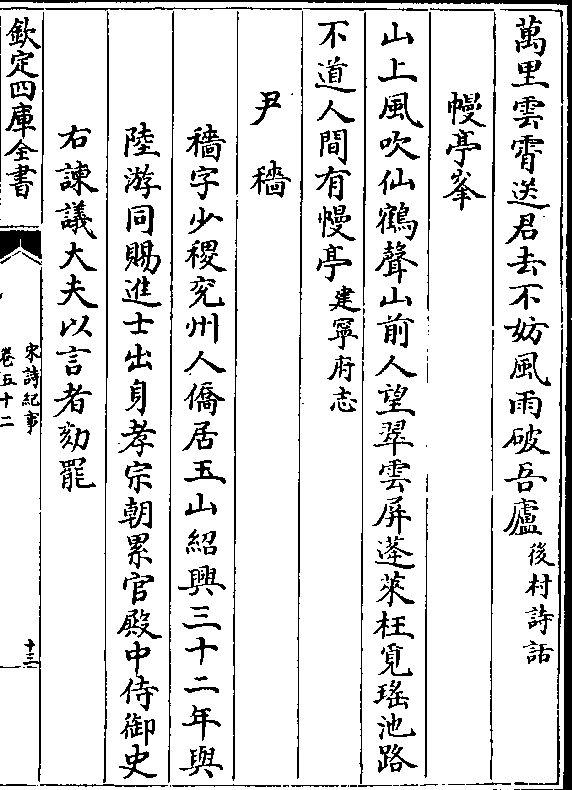 萬里雲霄送君去不妨風雨破吾廬後村詩話
幔亭峯
山上風吹仙鶴聲山前人望翠雲屏蓬萊枉覓瑤池路
不道人間有幔亭建寧府志
尹穡
穡字少稷兖州人僑居玉山紹興三十二年與
陸游同賜進士出身孝宗朝累官殿中侍御史
右諫議大夫以言者劾罷
欽定四庫全書
宋詩紀事
卷五十二
十三